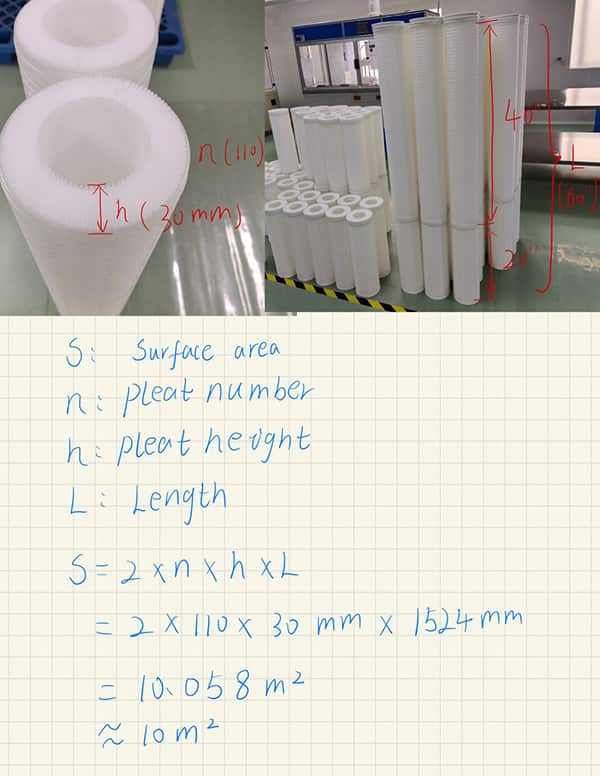 n(110)
h(30mm)
40"
20"
L
(60")
S: Surface area
n: pleat number
h: pleat height
L: Length
S=2×n×h×L
=2×110×30 mm×1524mm
=10.058m²
≈10m²